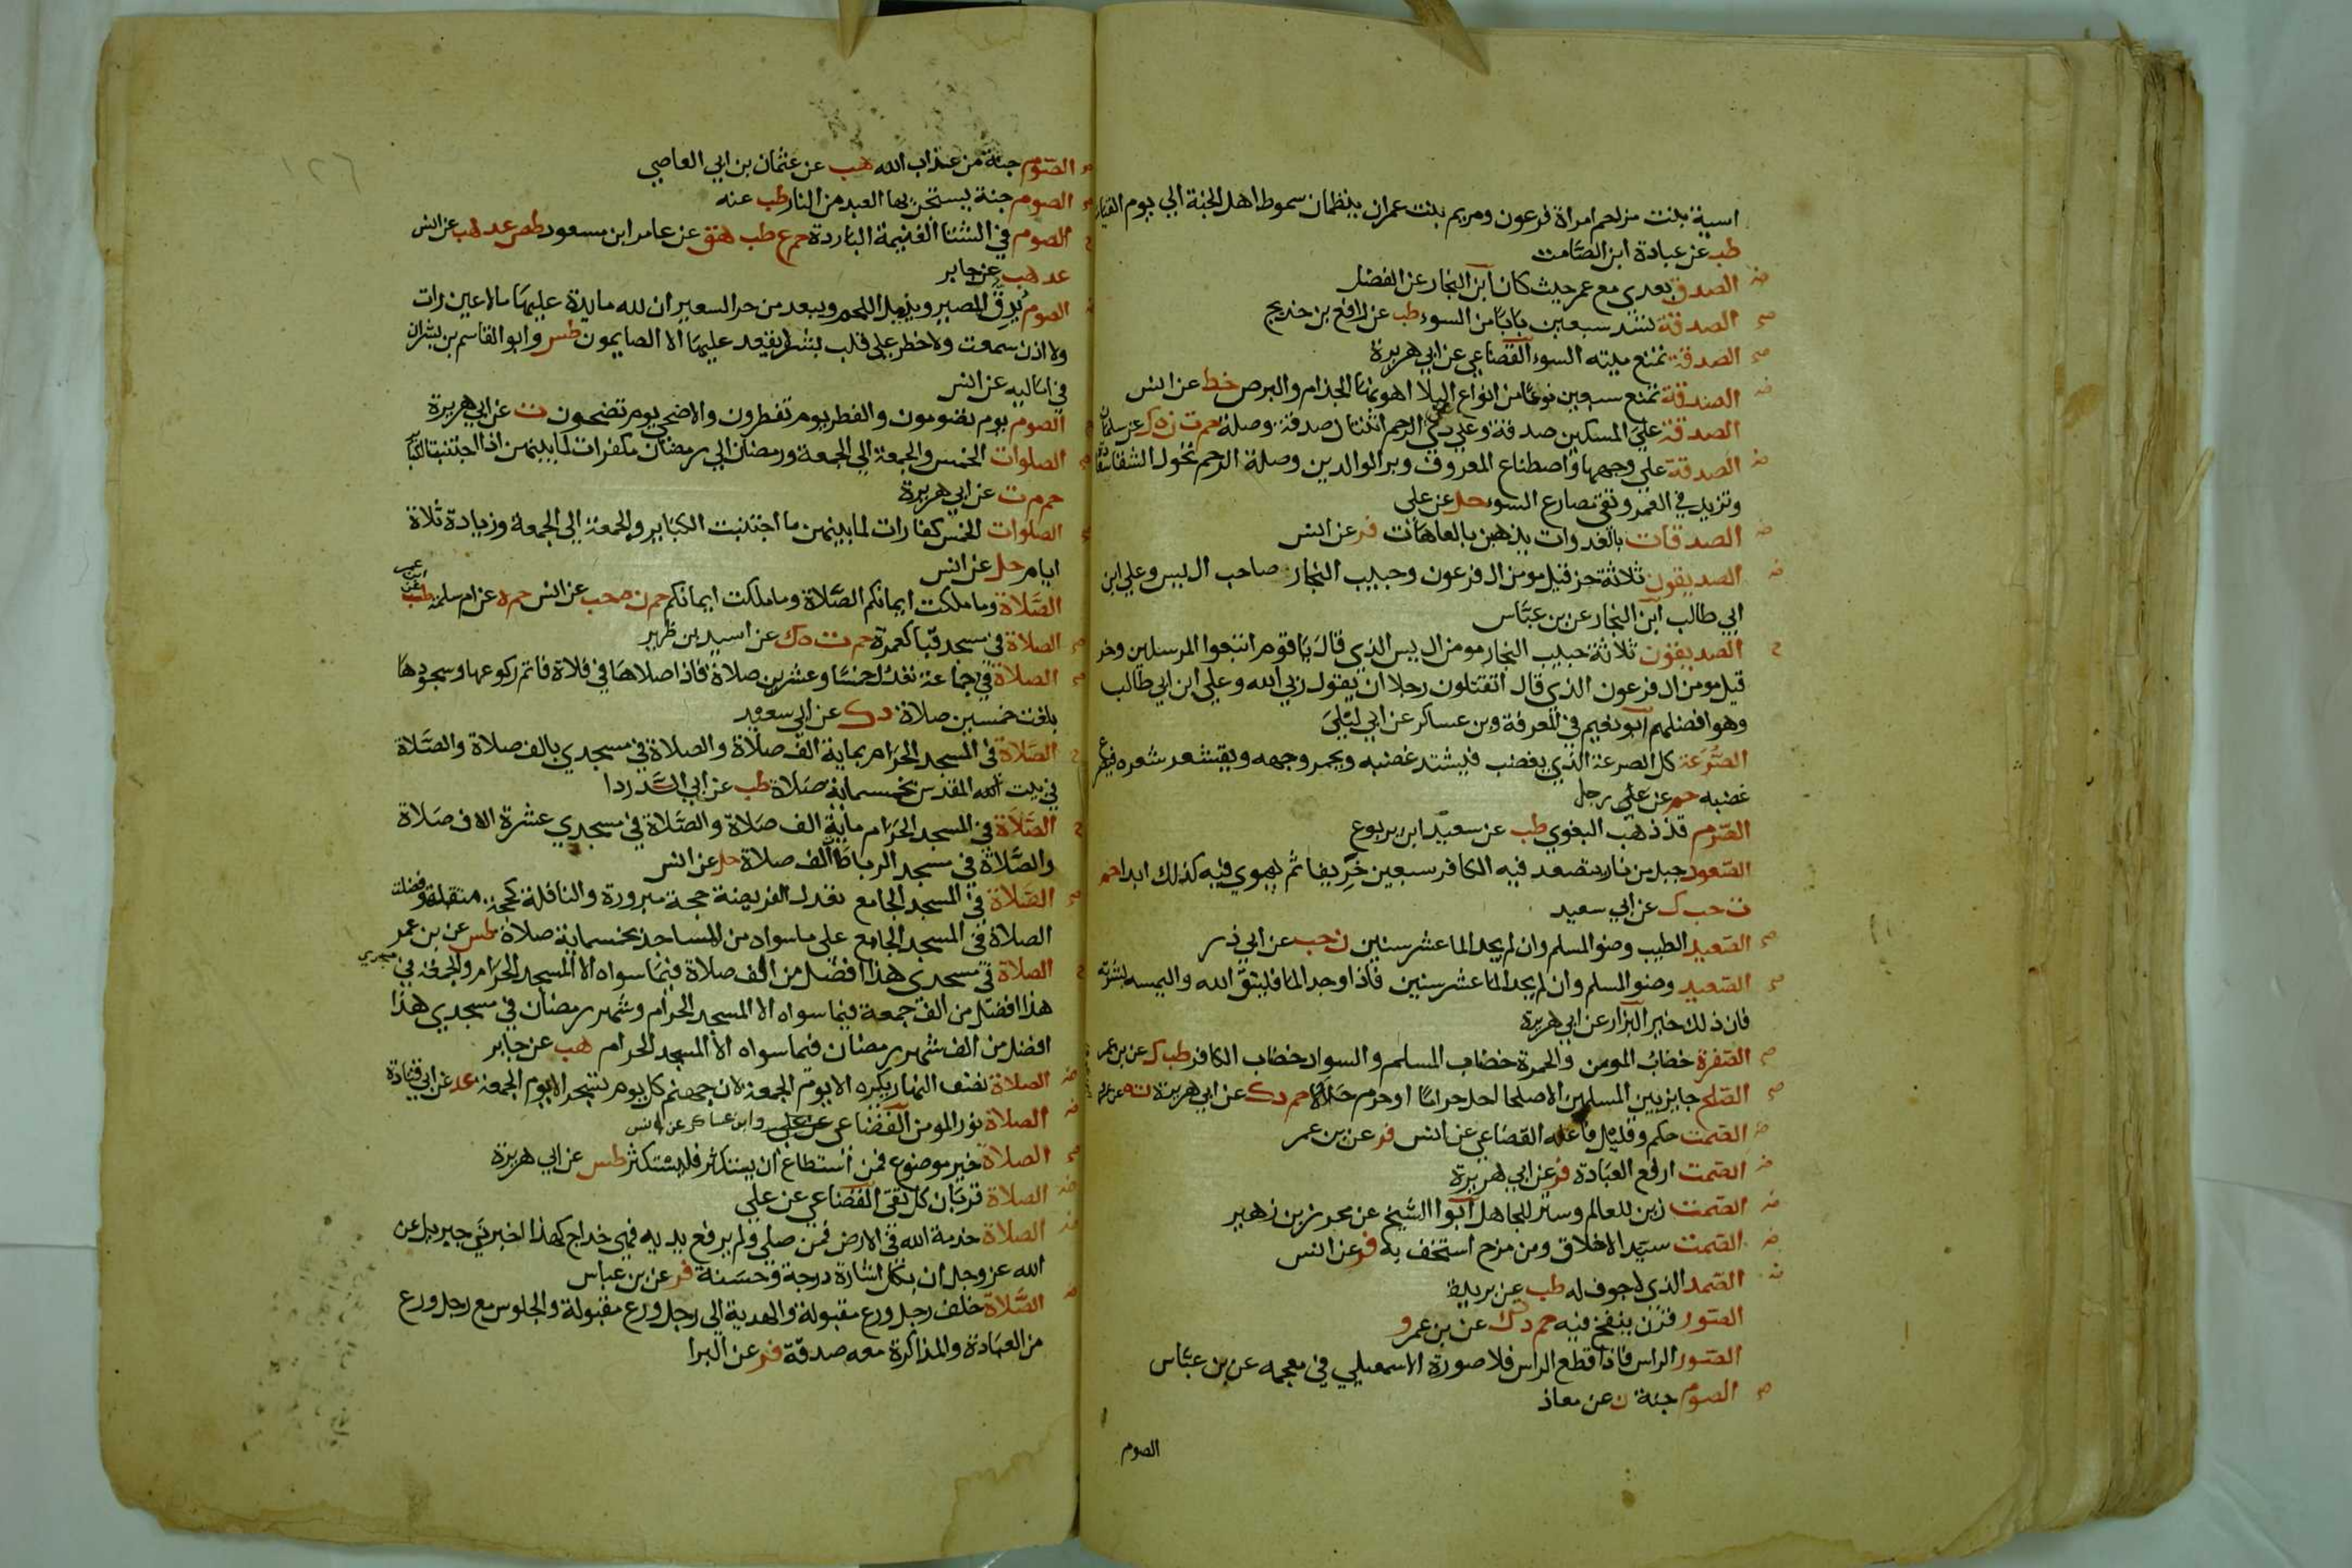 اسية بنت مزاحم امراة فرعون ومريم بنت عمران ينظمان سموط اهل الجنة الي يوم القيامة
طب عن عبادة ابن الصّامت
ضـ الصدق بعدي مع عمر حيث كان ابن النجار عن الفضل
صح الصدقة تسد سبعين بابًا من السوء طب عن رافع بن خديج
صح الصدقة تمنع ميته السوء القضاعي عن ابي هريرة
ضـ الصدقة تمنع سبعين نوعًا من انواع البلا اهونها الجذام والبرص خط عن انس
الصدقة علي المسكين صدقة وعلي ذي الرحم اثنتان صدقة وصلة حم ت ن ه ك عن سلمان
ضـ الصدقة علي وجهها واصطناع المعروف وبر الوالدين وصلة الرحم تحول الشقا سعادة
وتزيد في العمر وتقي مصارع السوء حل عن علي
ضـ الصدقات بالغدوات يذهبن بالعاهات فر عن انس
ضـ الصديقون ثلاثة حزقيل مومن ال فرعون وحبيب النجار صاحب ال يس وعلي ابن
ابي طالب ابن النجار عن بن عبّاس
ح الصديقون ثلاثة حبيب النجار مومن ال يس الذي قال يا قوم اتبعوا المرسلين وحز
قيل مومن ال فرعون الذي قال اتقتلون رجلا ان يقول ربي الله وعلي ابن ابي طالب
وهو افضلهم ابو نعيم في المعرفة وبن عساكر عن ابي ليلي
الصُّرَعة كل الصرعة الذي يغضب فيشتد غضبه ويحمر وجهه ويقشعر شعره فيصرع
غضبه حم عن علي رجل
الصّرم قد ذهب البغوي طب عن سعيد ابن يربوع
الصّعود جبل من نار يتصعد فيه الكافر سبعين خريفا ثم يهوي فيه كذلك ابدا حم
ت حب ك عن ابي سعيد
صح الصّعيد الطيب وضو المسلم وان لم يجد الما عشر سنين ن حب عن ابي ذر
صح الصّعيد وضو المسلم وان لم يجد الما عشر سنين فاذا وجد الما فليتق الله واليمسه بشرته
فان ذلك خير البزار عن ابي هريرة
صح الصّفرة خضاب المومن والحمرة خضاب المسلم والسواد خضاب الكافر طب ك عن بن عمر
صح الصّلح جايز بين المسلمين الا صلحا احل حرامًا او حرم حلالا حم د ك عن ابي هريرة ت ه
ضـ الصّمت حكم وقليل فاعله القضاعي عن انس فر عن بن عمر
ضـ الصّمت ارفع العبادة فر عن ابي هريرة
ضـ الصّمت زين للعالم وستر للجاهل ابوا الشيخ عن محرز بن زهير
ضـ الصّمت سيّد الاخلاق ومن مزح استخف به فر عن انس
ضـ الصّمد الذي لا جوف له طب عن بريدة
الصّور قرن ينفخ فيه حم د ك عن بن عمرو
الصّور الراس فاذا قطع الراس فلا صورة الاسمعيلي في معجمه عن بن عبّاس
صح الصوم جنة ن عن معاذ
الصوم
١٢٦
صح الصّوم جنة من عذاب الله هب عن عثمان بن ابي العاصي
صح الصوم جنة يستجن بها العبد من النار طب عنه
ح الصوم في الشتا الغنيمة الباردة حم ع طب هق عن عامر ابن مسعود طص عد هب عن انس
عد هب عن جابر
ضـ الصوم يدقّ المصير ويذبل اللحم ويبعد من حر السعير ان لله مايدة عليها ما لا عين رات
ولا اذن سمعت ولا خطر علي قلب بشر لا يقعد عليها الا الصايمون طس وابو القاسم بن بشران
في اماليه عن انس
الصوم يوم تصومون والفطر يوم تفطرون والاضحي يوم تضحون ت عن ابي هريرة
صح الصلوات الخمس والجمعة الي الجمعة ورمضان الي رمضان مكفرات لما بينهن اذا اجتنبت الكباير
حم م ت عن ابي هريرة
صح الصلوات الخمس كفارات لما بينهن ما اجتنبت الكباير والجمعة الي الجمعة وزيادة ثلاثة
ايام حل عن انس
الصَّلاة وما ملكت ايمانكم الصَّلاة وما ملكت ايمانكم حم ن ه حب عن انس حم ه عن ام سلمة طب عن ابن عمر
صح الصلاة في مسجد قبا كعمرة حم ت ه ك عن اسيد بن ظهير
صح الصلاة في جماعة تعدل خمسًا وعشرين صلاة فاذا صلاها في فلاة فاتم ركوعها وسجودها
بلغت خمسين صلاة د ك عن ابي سعيد
ح الصَّلاة في المسجد الحَرام بماية الف صلاة والصلاة في مسجدي بالف صلاة والصَّلاة
في بيت الله المقدس بخمسماية صَلاة طب عن ابي الدَّردا
ح الصَّلاة في المسجد الحَرام ماية الف صلاة والصَّلاة في مسجدي عشرة الاف صَلاة
والصَّلاة في مسجد الرباط الف صلاة حل عن انس
صح الصَّلاة في المسجد الجامع تعدل الفريضة حجة مبرورة والنافلة كحجة متقبلة وفضلت
الصلاة في المسجد الجامع علي ما سواه من المساجد بخمسماية صلاة طس عن بن عمر
ح الصلاة في مسجدي هذا افضل من الف صلاة فيما سواه الا المسجد الحرام والجمعة في مسجدي
هذا افضل من الف جمعة فيما سواه الا المسجد الحرام وشهر رمضان في مسجدي هذا
افضل من الف شهر رمضان فيما سواه الا المسجد الحرام هب عن جابر
ضـ الصلاة نصف النهار يكره الا يوم الجمعة لان جهنم كل يوم تسجر الا يوم الجمعة عد عن ابي قتادة
ضـ الصلاة نور المومن القضاعي عن علي وابن عساكر عن انس
صح الصلاة خير موضوع فمن استطاع ان يستكثر فليستكثر طس عن ابي هريرة
ضـ الصلاة قربان كل تقي القضاعي عن علي
ضـ الصلاة خدمة الله في الارض فمن صلي ولم يرفع يديه فهي خداج كهذا اخبرني جبريل عن
الله عز وجل ان بكل اشارة درجة وحسَنة فر عن بن عباس
ضـ الصَّلاة خلف رجل ورع مقبولة والهدية الي رجل ورع مقبولة والجلوس مع رجل ورع
من العبَادة والمذاكرة معه صدقة فر عن البرا